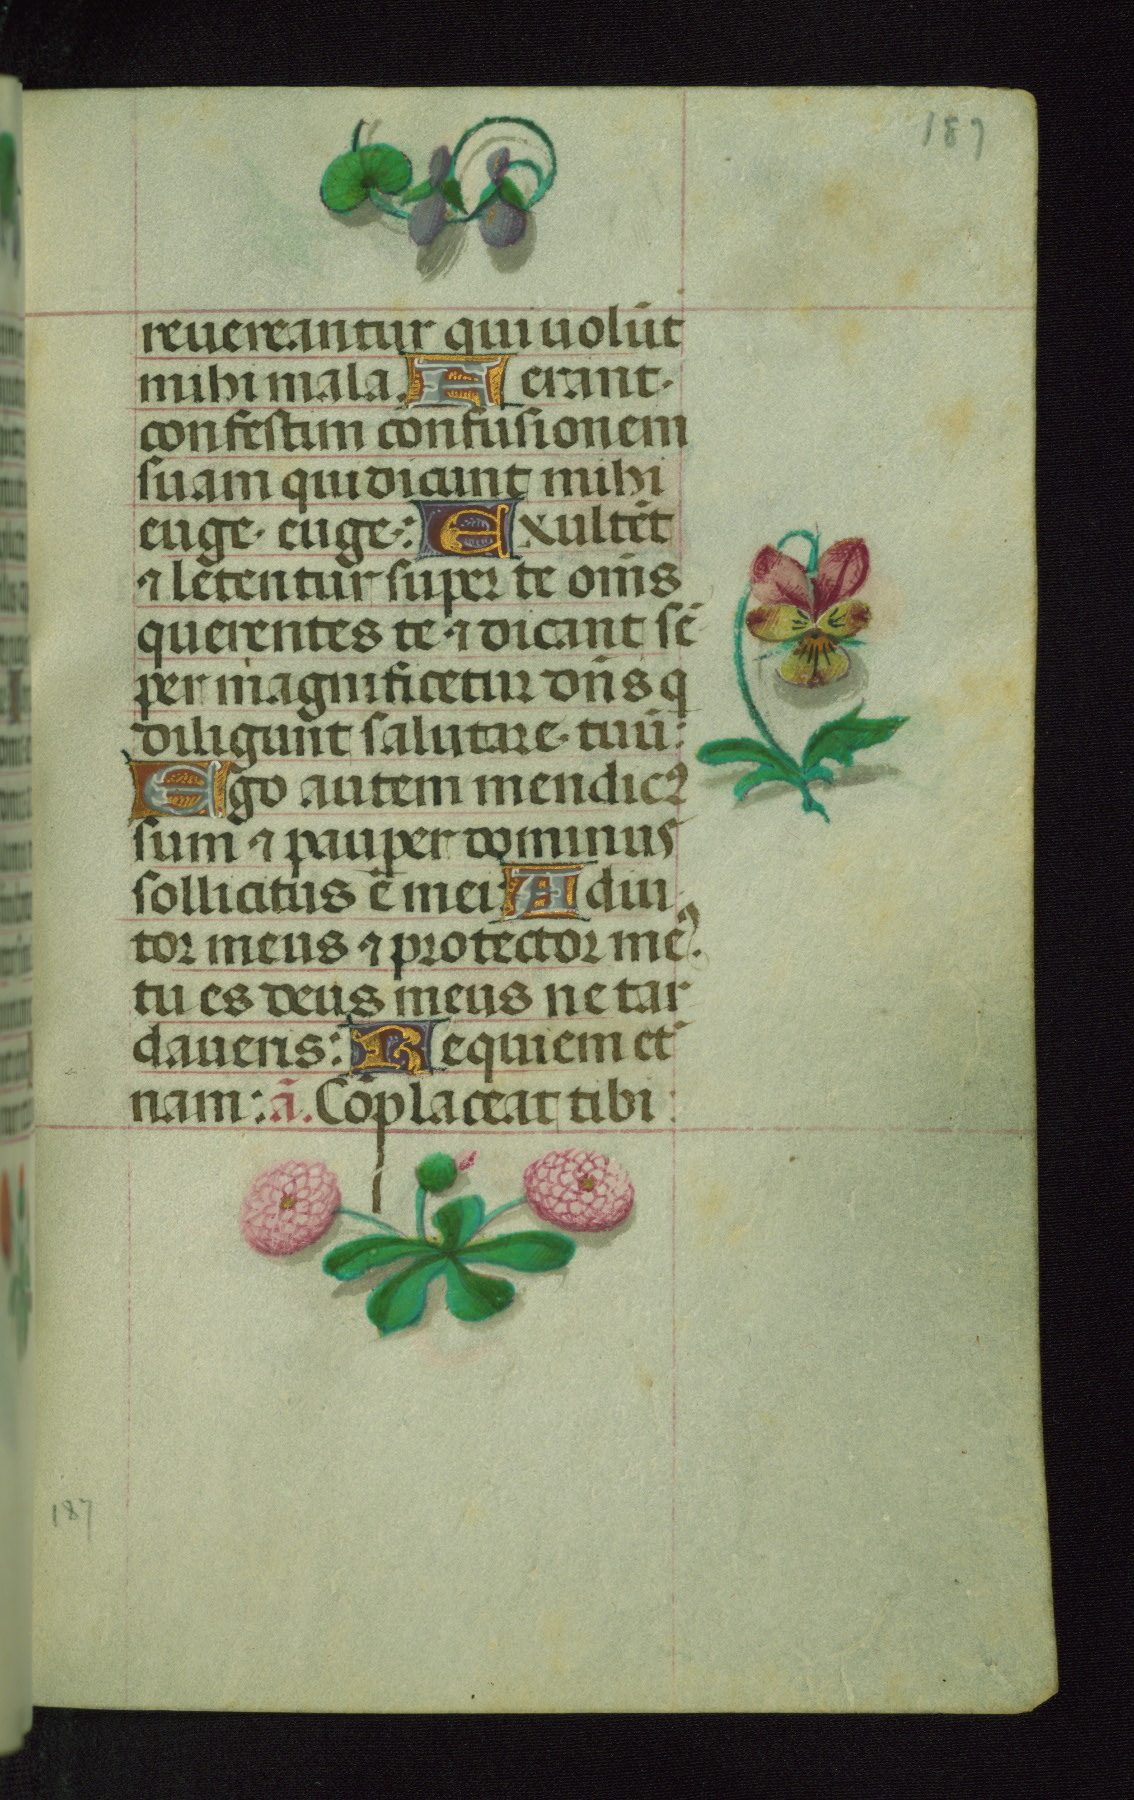 187
reuereantur qui uolūt
mihi mala. Ferant·
confestim confusionem
suam qui dicunt mihi
euge· euge·: Exultēt
⁊ letentur super te om̄s
querentes te·⁊ dicant sē
per magnificetur dn̄s q
diligunt salutare· tuū:
Ego autem mendicꝰ
sum ⁊ pauper dominus
sollicitus ē mei: Adiu
tor meus ⁊ protector meꝰ.
tu es deus meus ne tar
daueris: Requiem et̄
nam: ā. Cōplaceat tibi:
187